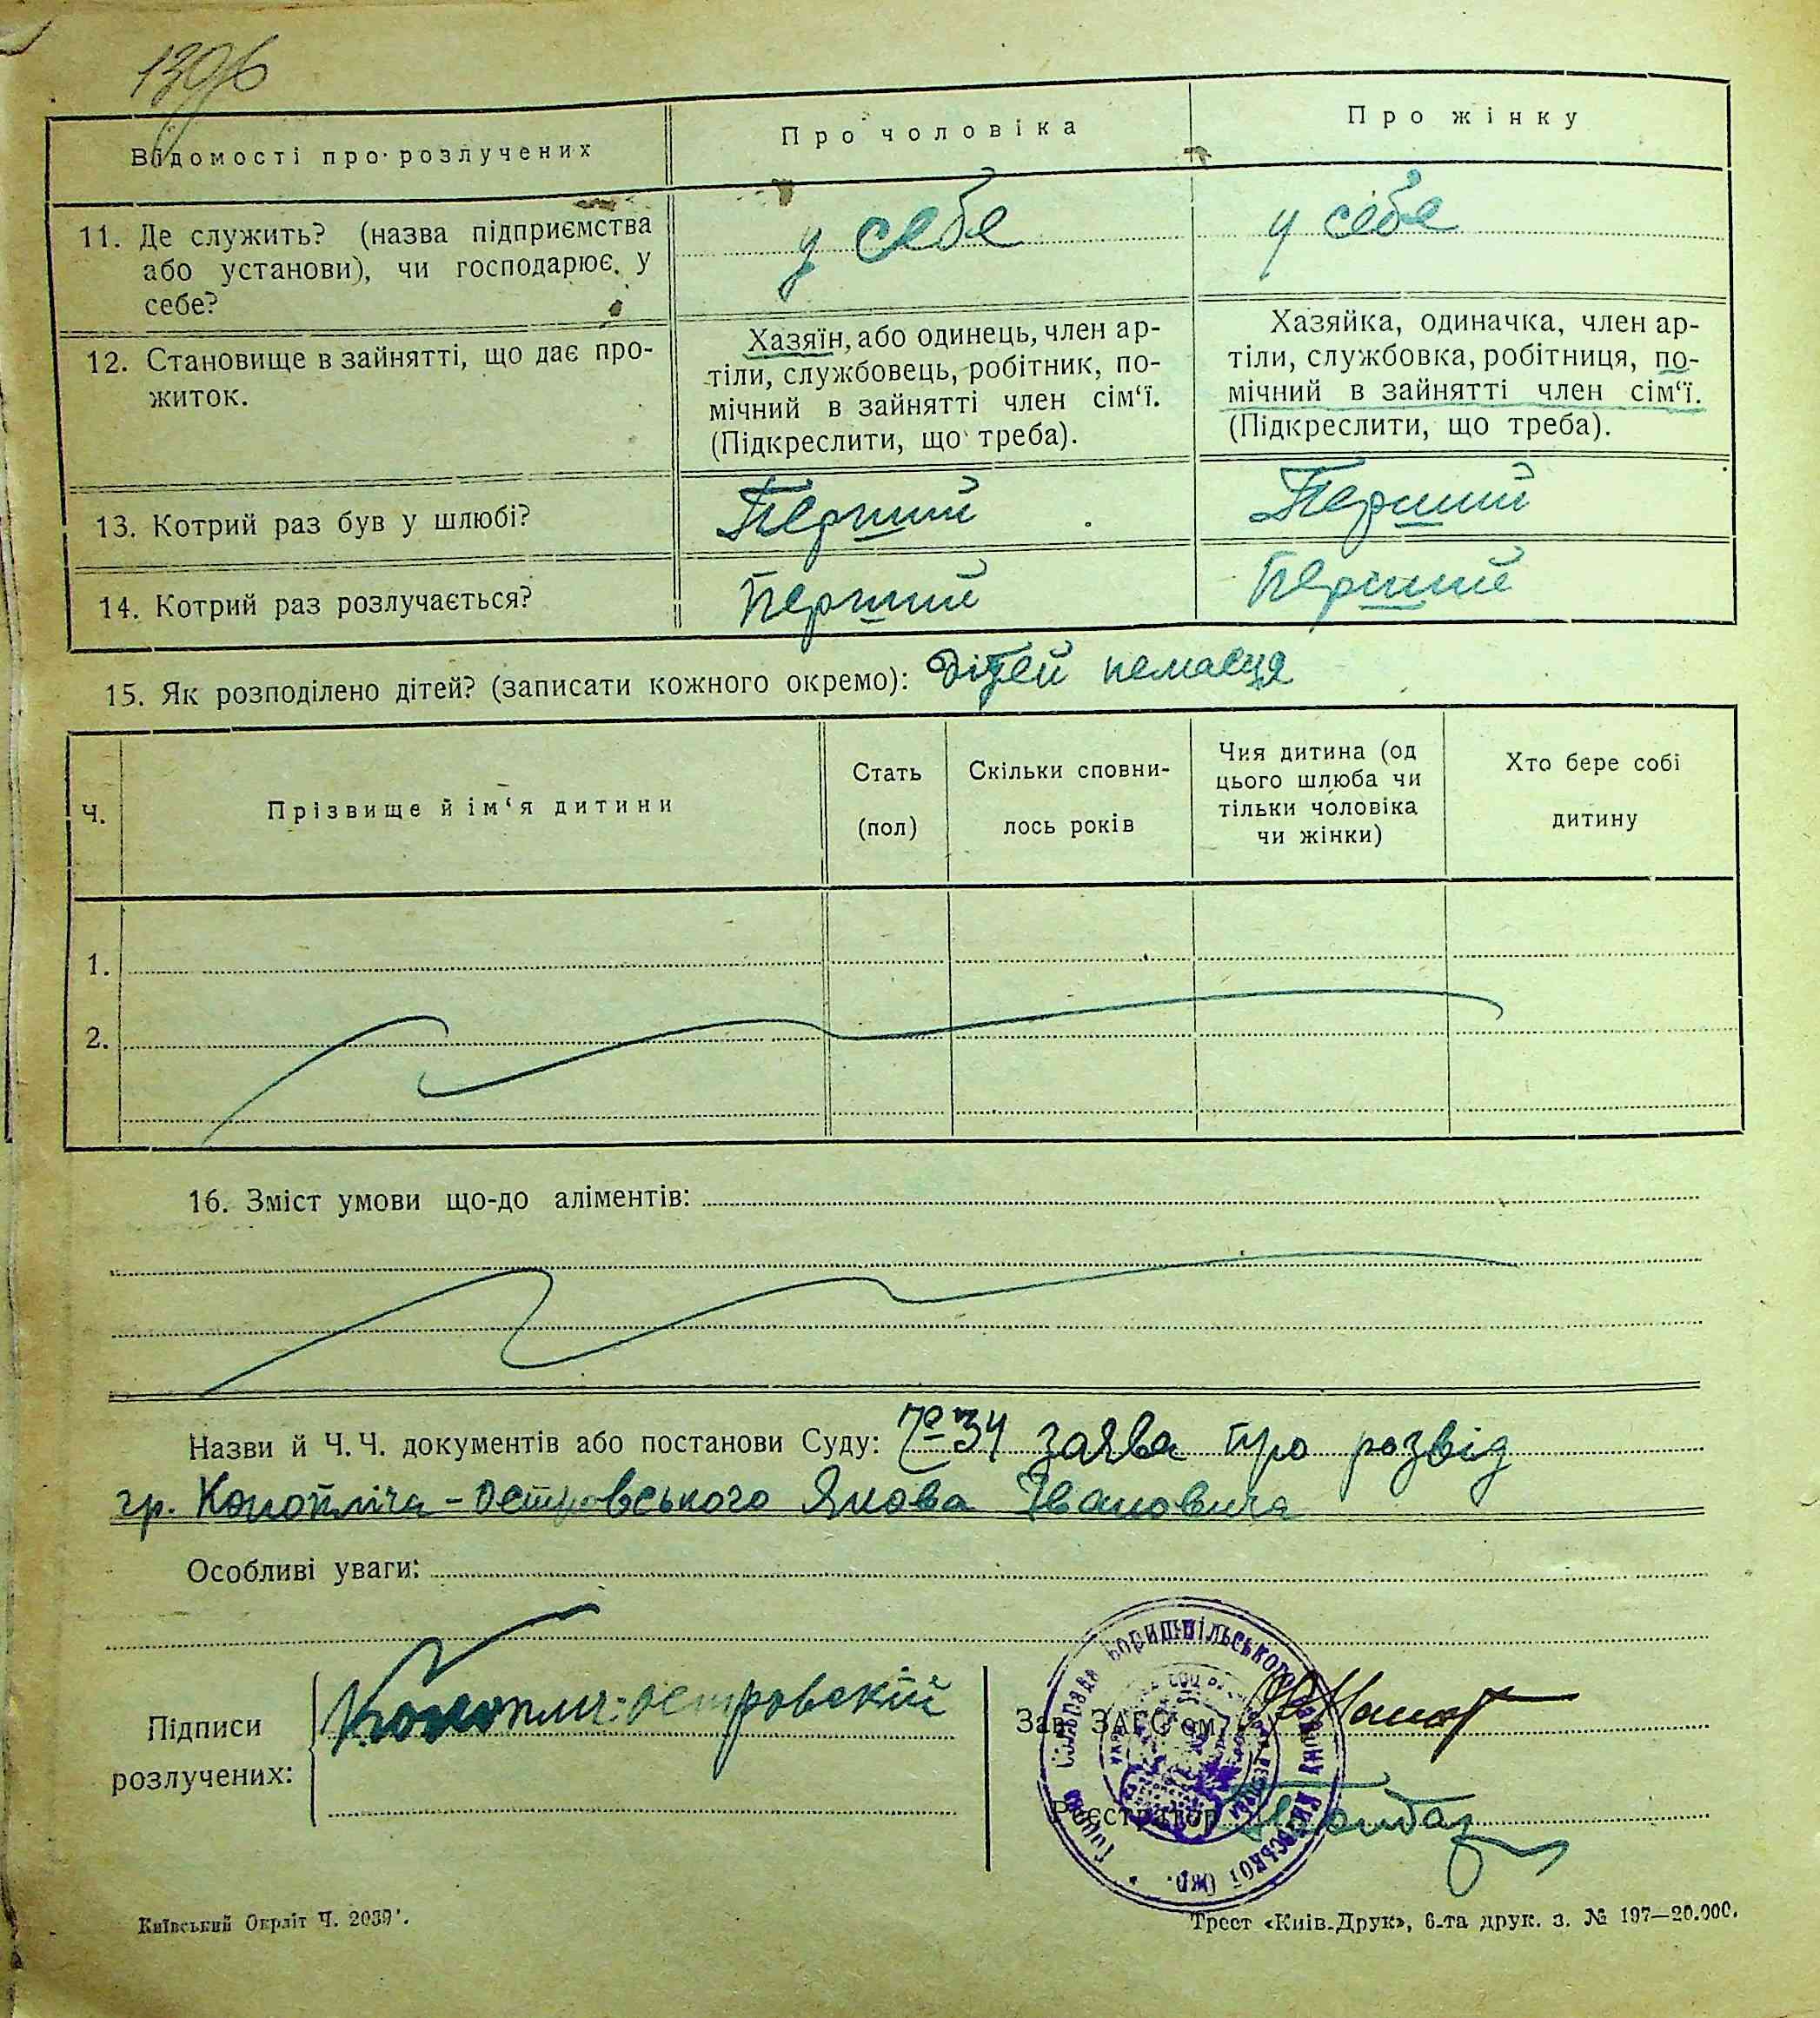 139б
Відомості про розлучених
Про чоловіка
Про жінку
11. Де служить? (назва підприємства
або установи), чи господарює у
себе?
у себе
у себе
12. Становище в зайнятті, що дає про-
житок.
Хазяїн, або одинець, член ар-
тіли, службовець, робітник, по-
мічний в зайнятті член сім‘ї.
(Підкреслити, що треба).
Хазяйка, одиначка, член ар-
тіли, службовка, робітниця, по-
мічний в зайнятті член сім‘ї.
(Підкреслити, що треба).
13. Котрий раз був у шлюбі?
Перший
Перший
14. Котрий раз розлучається?
Перший
Перший
15. Як розподілено дітей? (записати кожного окремо): Дітей немаєця
Ч.
Прізвище й ім‘я дитини
Стать
(пол)
Скільки сповни-
лось років
Чия дитина (од
цього шлюба чи
тільки чоловіка
чи жінки)
Хто бере собі
дитину
1.
2.
16. Зміст умови що-до аліментів:
Назви й Ч. Ч. документів або постанови Суду: 34 заява про розвід
гр. Конопліча-Островського Якова Івановича
Особливі уваги:
Підписи
розлучених:
Конопліч-островскій
Зав. ЗАГС'ом
Реєстратор
Бориспільського району Київської Окр.
Київський Окрліт Ч. 2039.
Трест «Київ-Друк», 6-та друк. з. № 197—20.000.